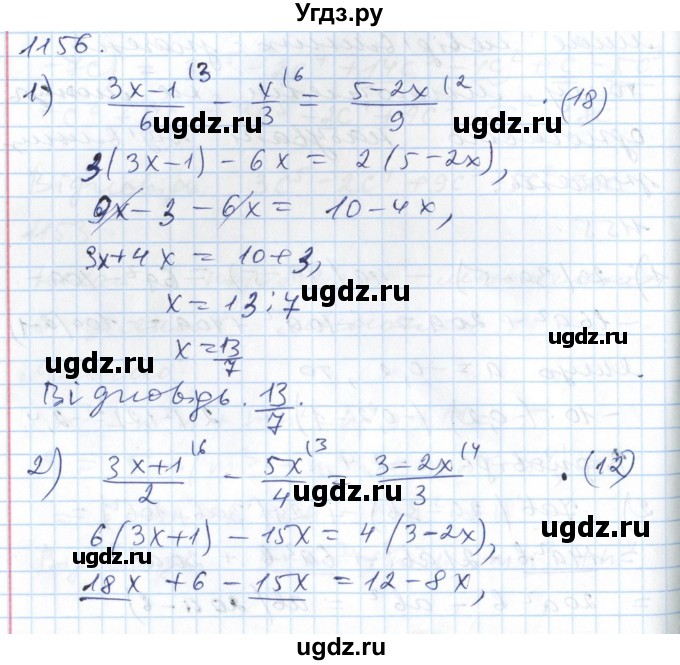 Угдз.ру
1156.
1) (3x-1)/6 (3 - x/3 (6 = (5-2x)/9 (2 · (18)
ugdz.ru ugdz.ru
3(3x-1) - 6x = 2(5-2x),
ugdz.ru ugdz.ru
9x - 3 - 6x = 10 - 4x,
3x+4x = 10+3,
x = 13:7
ugdz.ru
x = 13/7
ugdz.ru ugdz.ru
Відповідь. 13/7.
ugdz.ru
2) (3x+1)/2 (6 - 5x/4 (3 = (3-2x)/3 (4 · (12)
ugdz.ru ugdz.ru
6(3x+1) - 15x = 4(3-2x),
ugdz.ru ugdz.ru
18x + 6 - 15x = 12 - 8x,
ugdz.ru